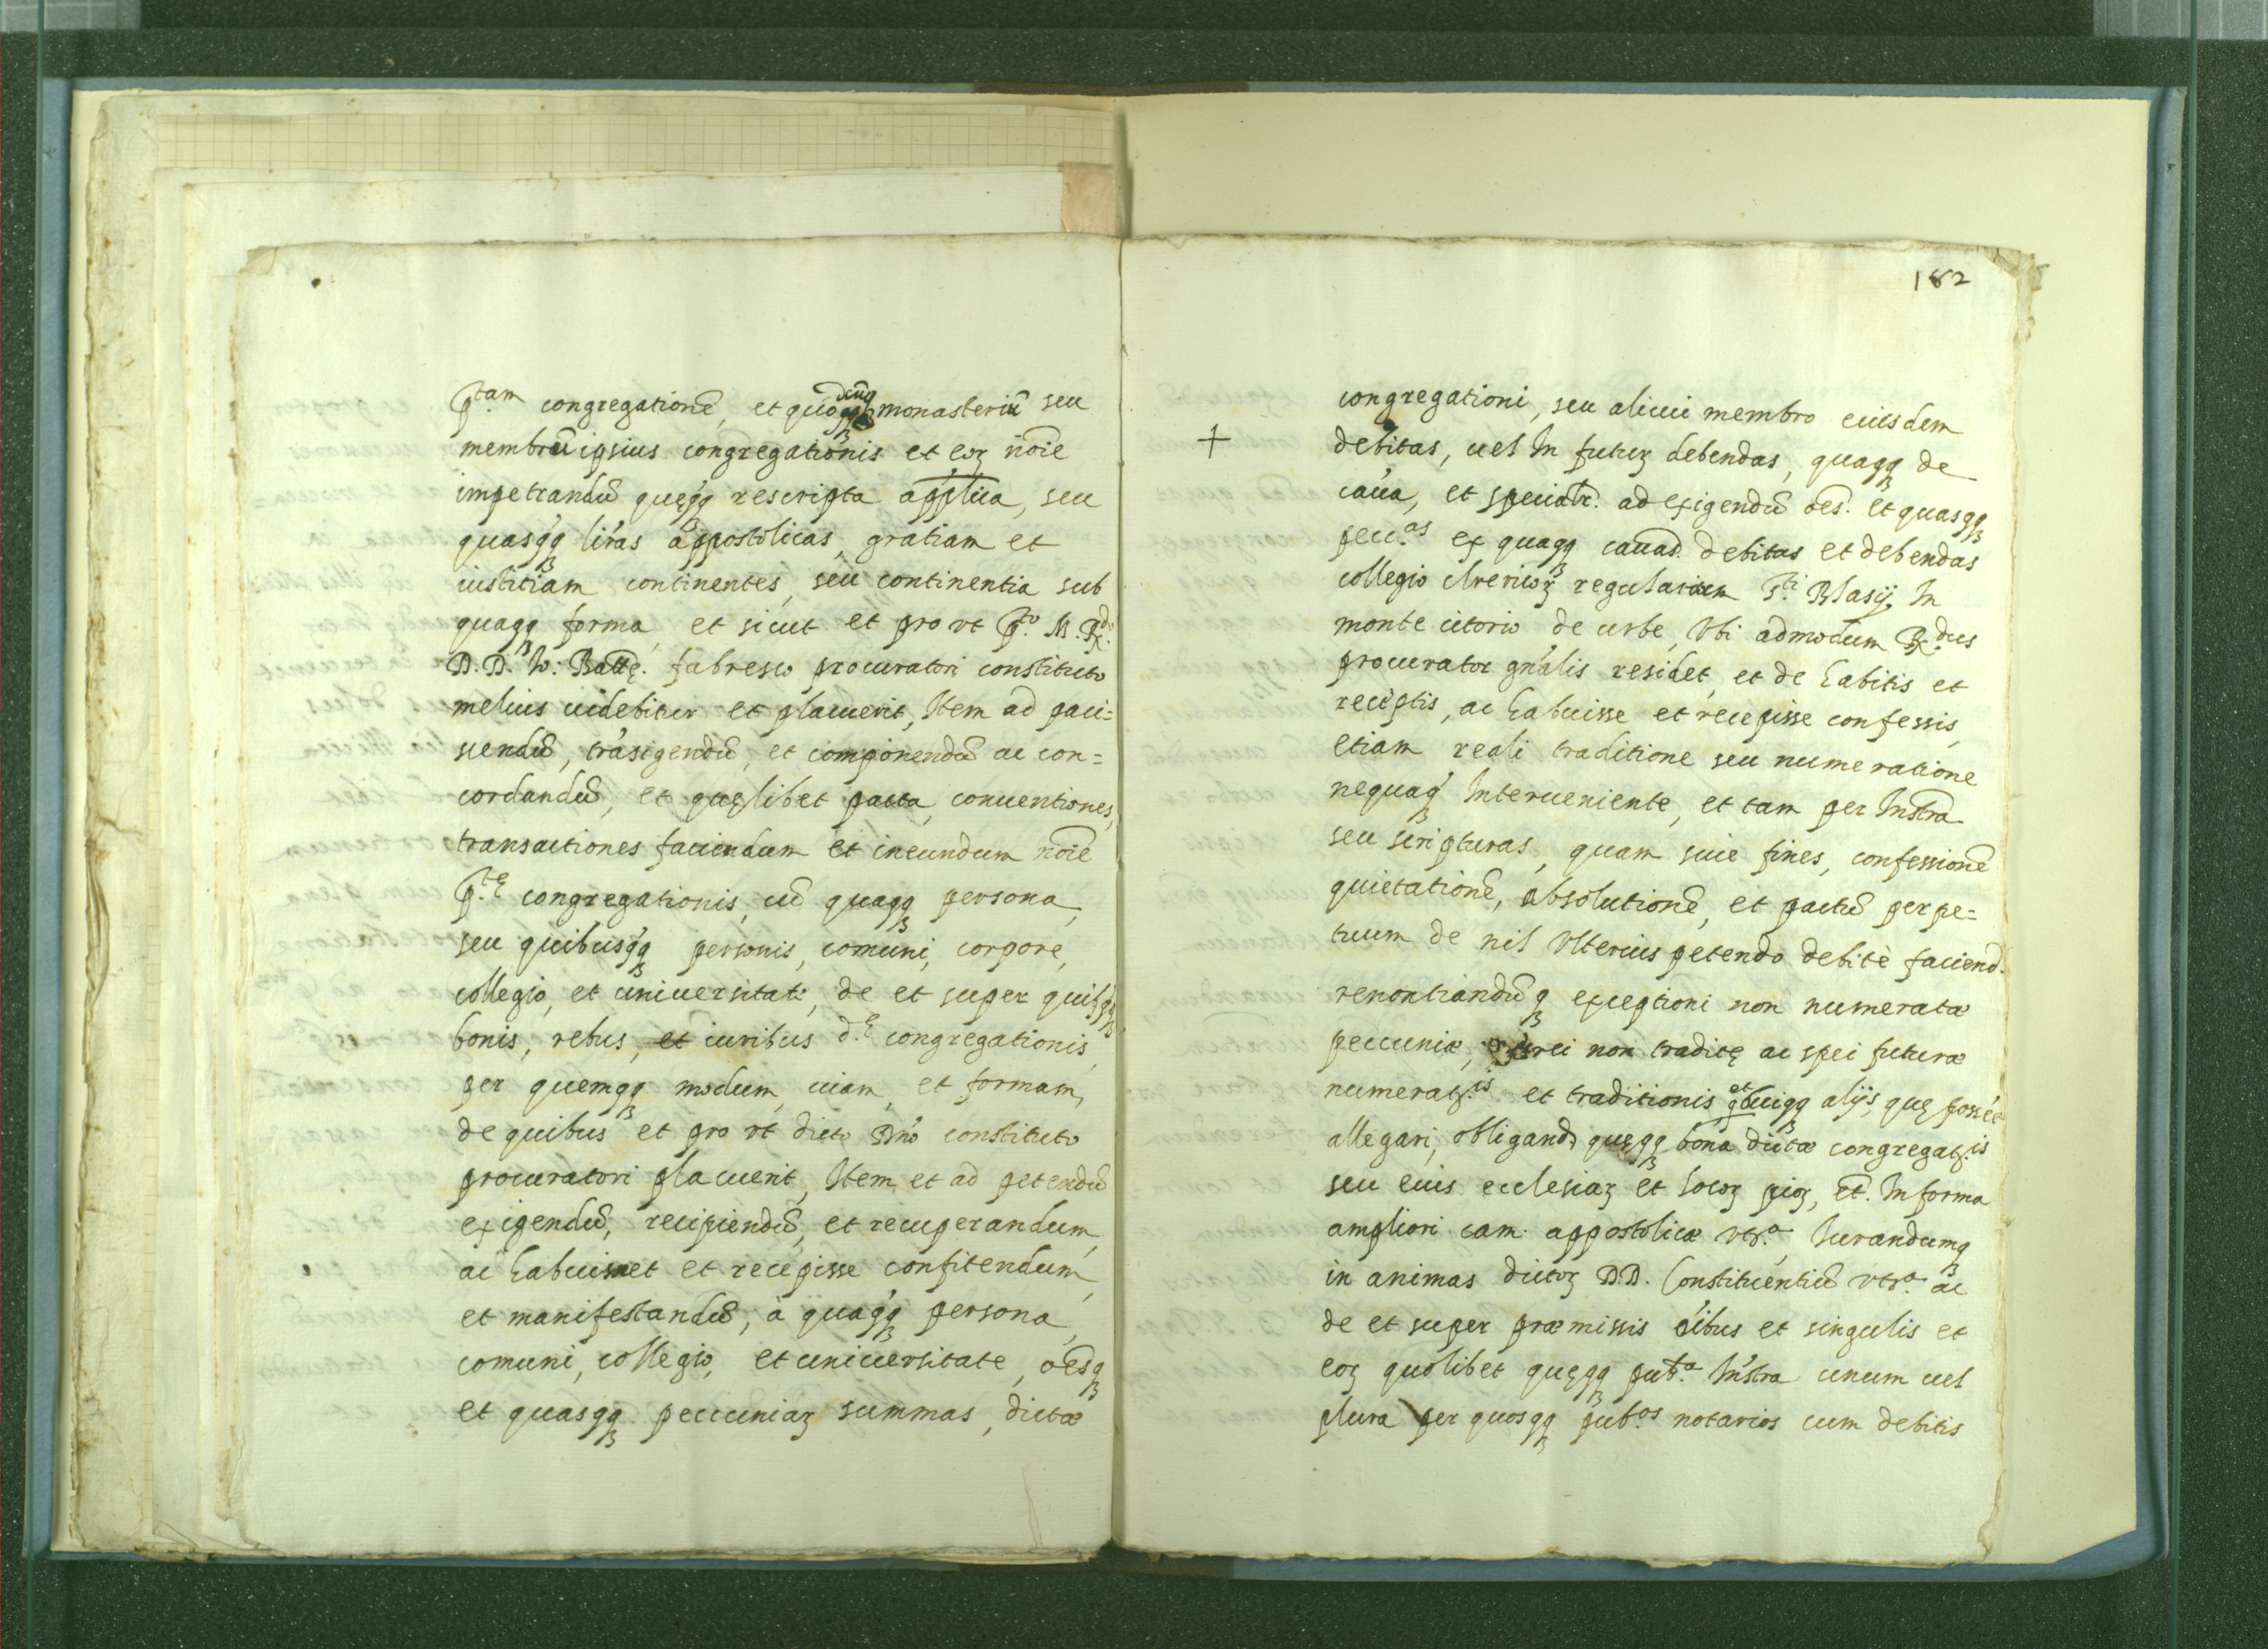 p.tam congregationē, et quodcūq monasteriū seu
membrū ipsius congregationis et eoꝝ nōie
impetrandū quęqq rescripta applica, seu
quasqq lřas appostolicas, gratiam et
iustitiam continentes, seu continentia sub
quaqq forma, et sicut et pro vt p.to M. R.do
D. D. Io: Battę. fabresco procuratori constituto
melius uidebitur et placuerit, Item ad paci=
scendū, trāsigendū, et componendū ac con=
cordandū, et quęlibet pacta, conuentiones,
transactiones faciendum et ineundum nōie
p.tę congregationis, cū quaqq persona,
seu quibusqq personis, comuni, corpore,
collegio, et uniuersitate, de et super quibqq
bonis, rebus, et iuribus d.ę congregationis,
per quemqq modum, uiam, et formam,
de quibus et pro vt dicto Dn̄o constituto
procuratori placuerit, Item et ad petendū
exigendū, recipiendū, et recuperandum,
ac habuisse et recepisse confitendum,
et manifestandū, à quaqq persona,
comuni, collegio, et uniuersitate, oēsq
et quasqq pecuniaꝝ summas, dictæ
182
congregationi, seu alicui membro eiusdem
+ debitas, uel In futuꝝ debendas, quaqq de
cāua, et speciatr. ad exigendū oēs. et quasqq
pecc.as ex quaqq cauād. debitas et debendas
collegio clericoꝝ regularium S.ti Blasij In
monte citorio de urbe, Vbi admodum R.dus
procurator gn̄alis residet, et de habitis et
receptis, ac habuisse et recepisse confessis,
etiam reali traditione seu numeratione
nequaq Interueniente, et tam per Instra
seu scripturas, quam sine fines, confessionē
quietationē, absolutionē, et pactū perpe=
tuum de nil Vlterius petendo debitè faciend.
renontiandūq exceptioni non numeratæ
peccuniæ, rei non traditę ac spei futuræ
numerat.is et traditionis et cuiqq alijs, quę possēt
allegari, obligand. quęqq bona dictæ congregat.is
seu eius ecclesiaꝝ et locoꝝ pioꝝ, et. In forma
ampliori cam. appostolicæ vtr.a Iurandumq
in animas dictoꝝ D.D. Constituentiū vtr.a ac
de et super præmissis oībus et singulis et
eoꝝ quolibet quęqq pub.a Instra unum uel
plura per quosqq pub.os notarios cum debitis